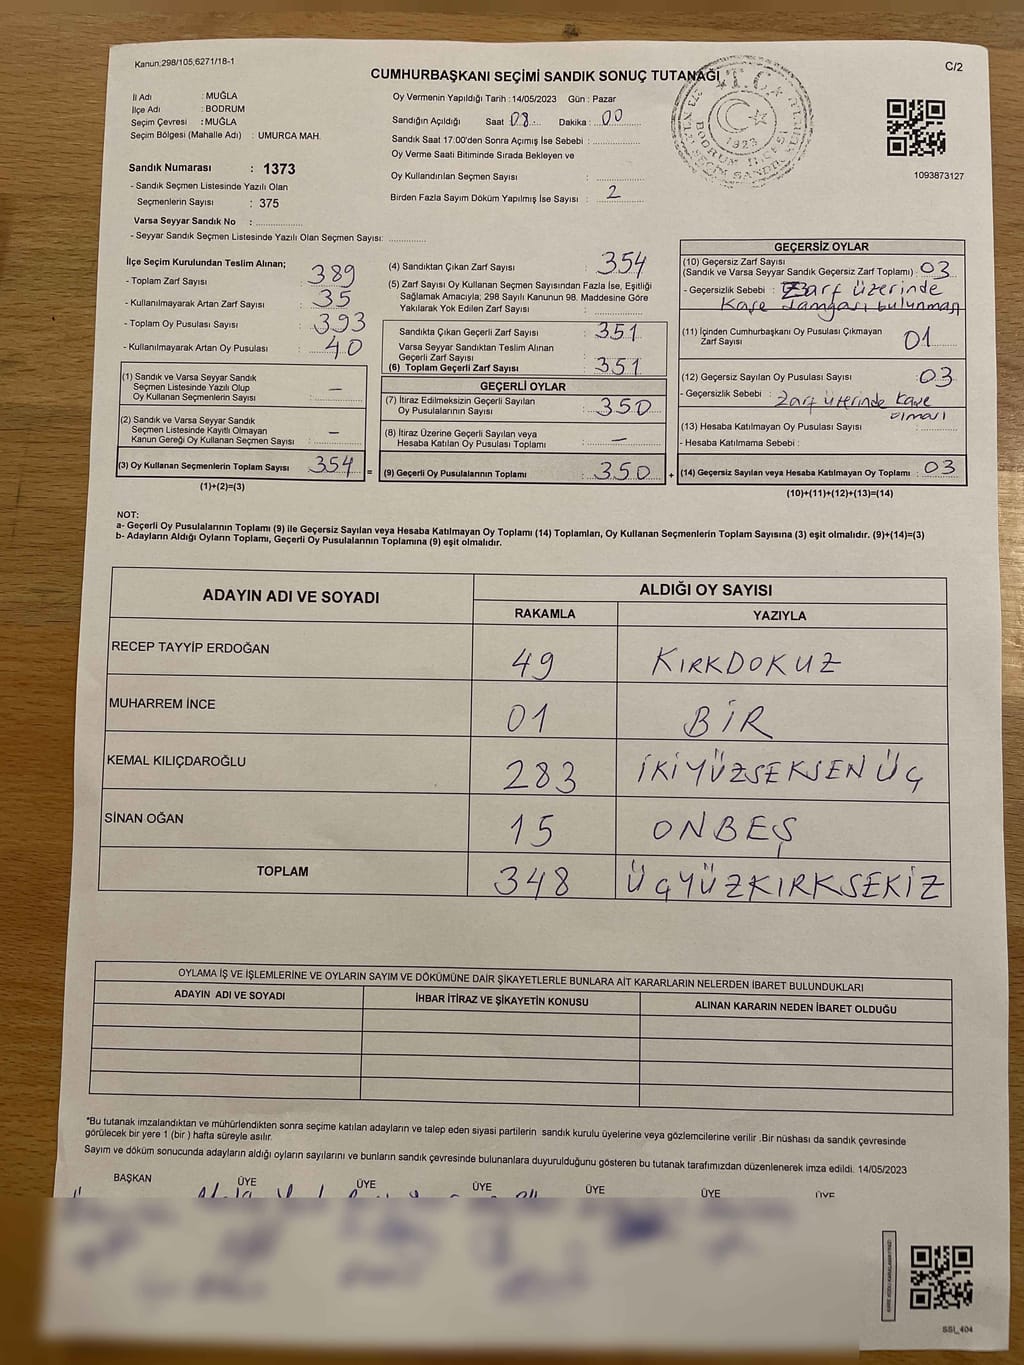 Kanun,298/105,6271/18-1
C/2
CUMHURBAŞKANI SEÇİMİ SANDIK SONUÇ TUTANAĞI
T.C.
1923
BODRUM İLÇESİ
İl Adı : MUĞLA
İlçe Adı : BODRUM
Seçim Çevresi : MUĞLA
Seçim Bölgesi (Mahalle Adı) : UMURCA MAH.
Sandık Numarası : 1373
- Sandık Seçmen Listesinde Yazılı Olan
Seçmenlerin Sayısı : 375
Varsa Seyyar Sandık No : ..............
- Seyyar Sandık Seçmen Listesinde Yazılı Olan Seçmen Sayısı: ............
Oy Vermenin Yapıldığı Tarih : 14/05/2023 Gün : Pazar
Sandığın Açıldığı Saat 08 Dakika : 00
Sandık Saat 17:00'den Sonra Açımış İse Sebebi : ..............
Oy Verme Saati Bitiminde Sırada Bekleyen ve
Oy Kullandırılan Seçmen Sayısı : ..............
Birden Fazla Sayım Döküm Yapılmış İse Sayısı : 2
1093873127
İlçe Seçim Kurulundan Teslim Alınan;
- Toplam Zarf Sayısı : 389
- Kullanılmayarak Artan Zarf Sayısı : 35
- Toplam Oy Pusulası Sayısı : 393
- Kullanılmayarak Artan Oy Pusulası : 40
(1) Sandık ve Varsa Seyyar Sandık
Seçmen Listesinde Yazılı Olup
Oy Kullanan Seçmenlerin Sayısı : —
(2) Sandık ve Varsa Seyyar Sandık
Seçmen Listesinde Kayıtlı Olmayan
Kanun Gereği Oy Kullanan Seçmen Sayısı : —
(3) Oy Kullanan Seçmenlerin Toplam Sayısı : 354 =
(1)+(2)=(3)
(4) Sandıktan Çıkan Zarf Sayısı : 354
(5) Zarf Sayısı Oy Kullanan Seçmen Sayısından Fazla İse, Eşitliği
Sağlamak Amacıyla; 298 Sayılı Kanunun 98. Maddesine Göre
Yakılarak Yok Edilen Zarf Sayısı : ..............
Sandıkta Çıkan Geçerli Zarf Sayısı : 351
Varsa Seyyar Sandıktan Teslim Alınan
Geçerli Zarf Sayısı :
(6) Toplam Geçerli Zarf Sayısı : 351
GEÇERLİ OYLAR
(7) İtiraz Edilmeksizin Geçerli Sayılan
Oy Pusulalarının Sayısı : 350
(8) İtiraz Üzerine Geçerli Sayılan veya
Hesaba Katılan Oy Pusulası Toplamı : —
(9) Geçerli Oy Pusulalarının Toplamı : 350 +
GEÇERSİZ OYLAR
(10) Geçersiz Zarf Sayısı
(Sandık ve Varsa Seyyar Sandık Geçersiz Zarf Toplamı) : 03
- Geçersizlik Sebebi : Zarf üzerinde
Kaşe damgası bulunması
(11) İçinden Cumhurbaşkanı Oy Pusulası Çıkmayan
Zarf Sayısı : 01
(12) Geçersiz Sayılan Oy Pusulası Sayısı : 03
- Geçersizlik Sebebi : Zarf üzerinde Kaşe
olması
(13) Hesaba Katılmayan Oy Pusulası Sayısı : ..............
- Hesaba Katılmama Sebebi :
(14) Geçersiz Sayılan veya Hesaba Katılmayan Oy Toplamı : 03
(10)+(11)+(12)+(13)=(14)
NOT:
a- Geçerli Oy Pusulalarının Toplamı (9) ile Geçersiz Sayılan veya Hesaba Katılmayan Oy Toplamı (14) Toplamları, Oy Kullanan Seçmenlerin Toplam Sayısına (3) eşit olmalıdır. (9)+(14)=(3)
b- Adayların Aldığı Oyların Toplamı, Geçerli Oy Pusulalarının Toplamına (9) eşit olmalıdır.
ADAYIN ADI VE SOYADI
ALDIĞI OY SAYISI
RAKAMLA YAZIYLA
RECEP TAYYİP ERDOĞAN 49 KIRKDOKUZ
MUHARREM İNCE 01 BİR
KEMAL KILIÇDAROĞLU 283 İKİYÜZSEKSENÜÇ
SİNAN OĞAN 15 ONBEŞ
TOPLAM 348 ÜÇYÜZKIRKSEKİZ
OYLAMA İŞ VE İŞLEMLERİNE VE OYLARIN SAYIM VE DÖKÜMÜNE DAİR ŞİKAYETLERLE BUNLARA AİT KARARLARIN NELERDEN İBARET BULUNDUKLARI
ADAYIN ADI VE SOYADI İHBAR İTİRAZ VE ŞİKAYETİN KONUSU ALINAN KARARIN NEDEN İBARET OLDUĞU
*Bu tutanak imzalandıktan ve mühürlendikten sonra seçime katılan adayların ve talep eden siyasi partilerin sandık kurulu üyelerine veya gözlemcilerine verilir .Bir nüshası da sandık çevresinde
görülecek bir yere 1 (bir ) hafta süreyle asılır.
Sayım ve döküm sonucunda adayların aldığı oyların sayılarını ve bunların sandık çevresinde bulunanlara duyurulduğunu gösteren bu tutanak tarafımızdan düzenlenerek imza edildi. 14/05/2023
BAŞKAN ÜYE ÜYE ÜYE ÜYE ÜYE ÜYE
SSİ_404